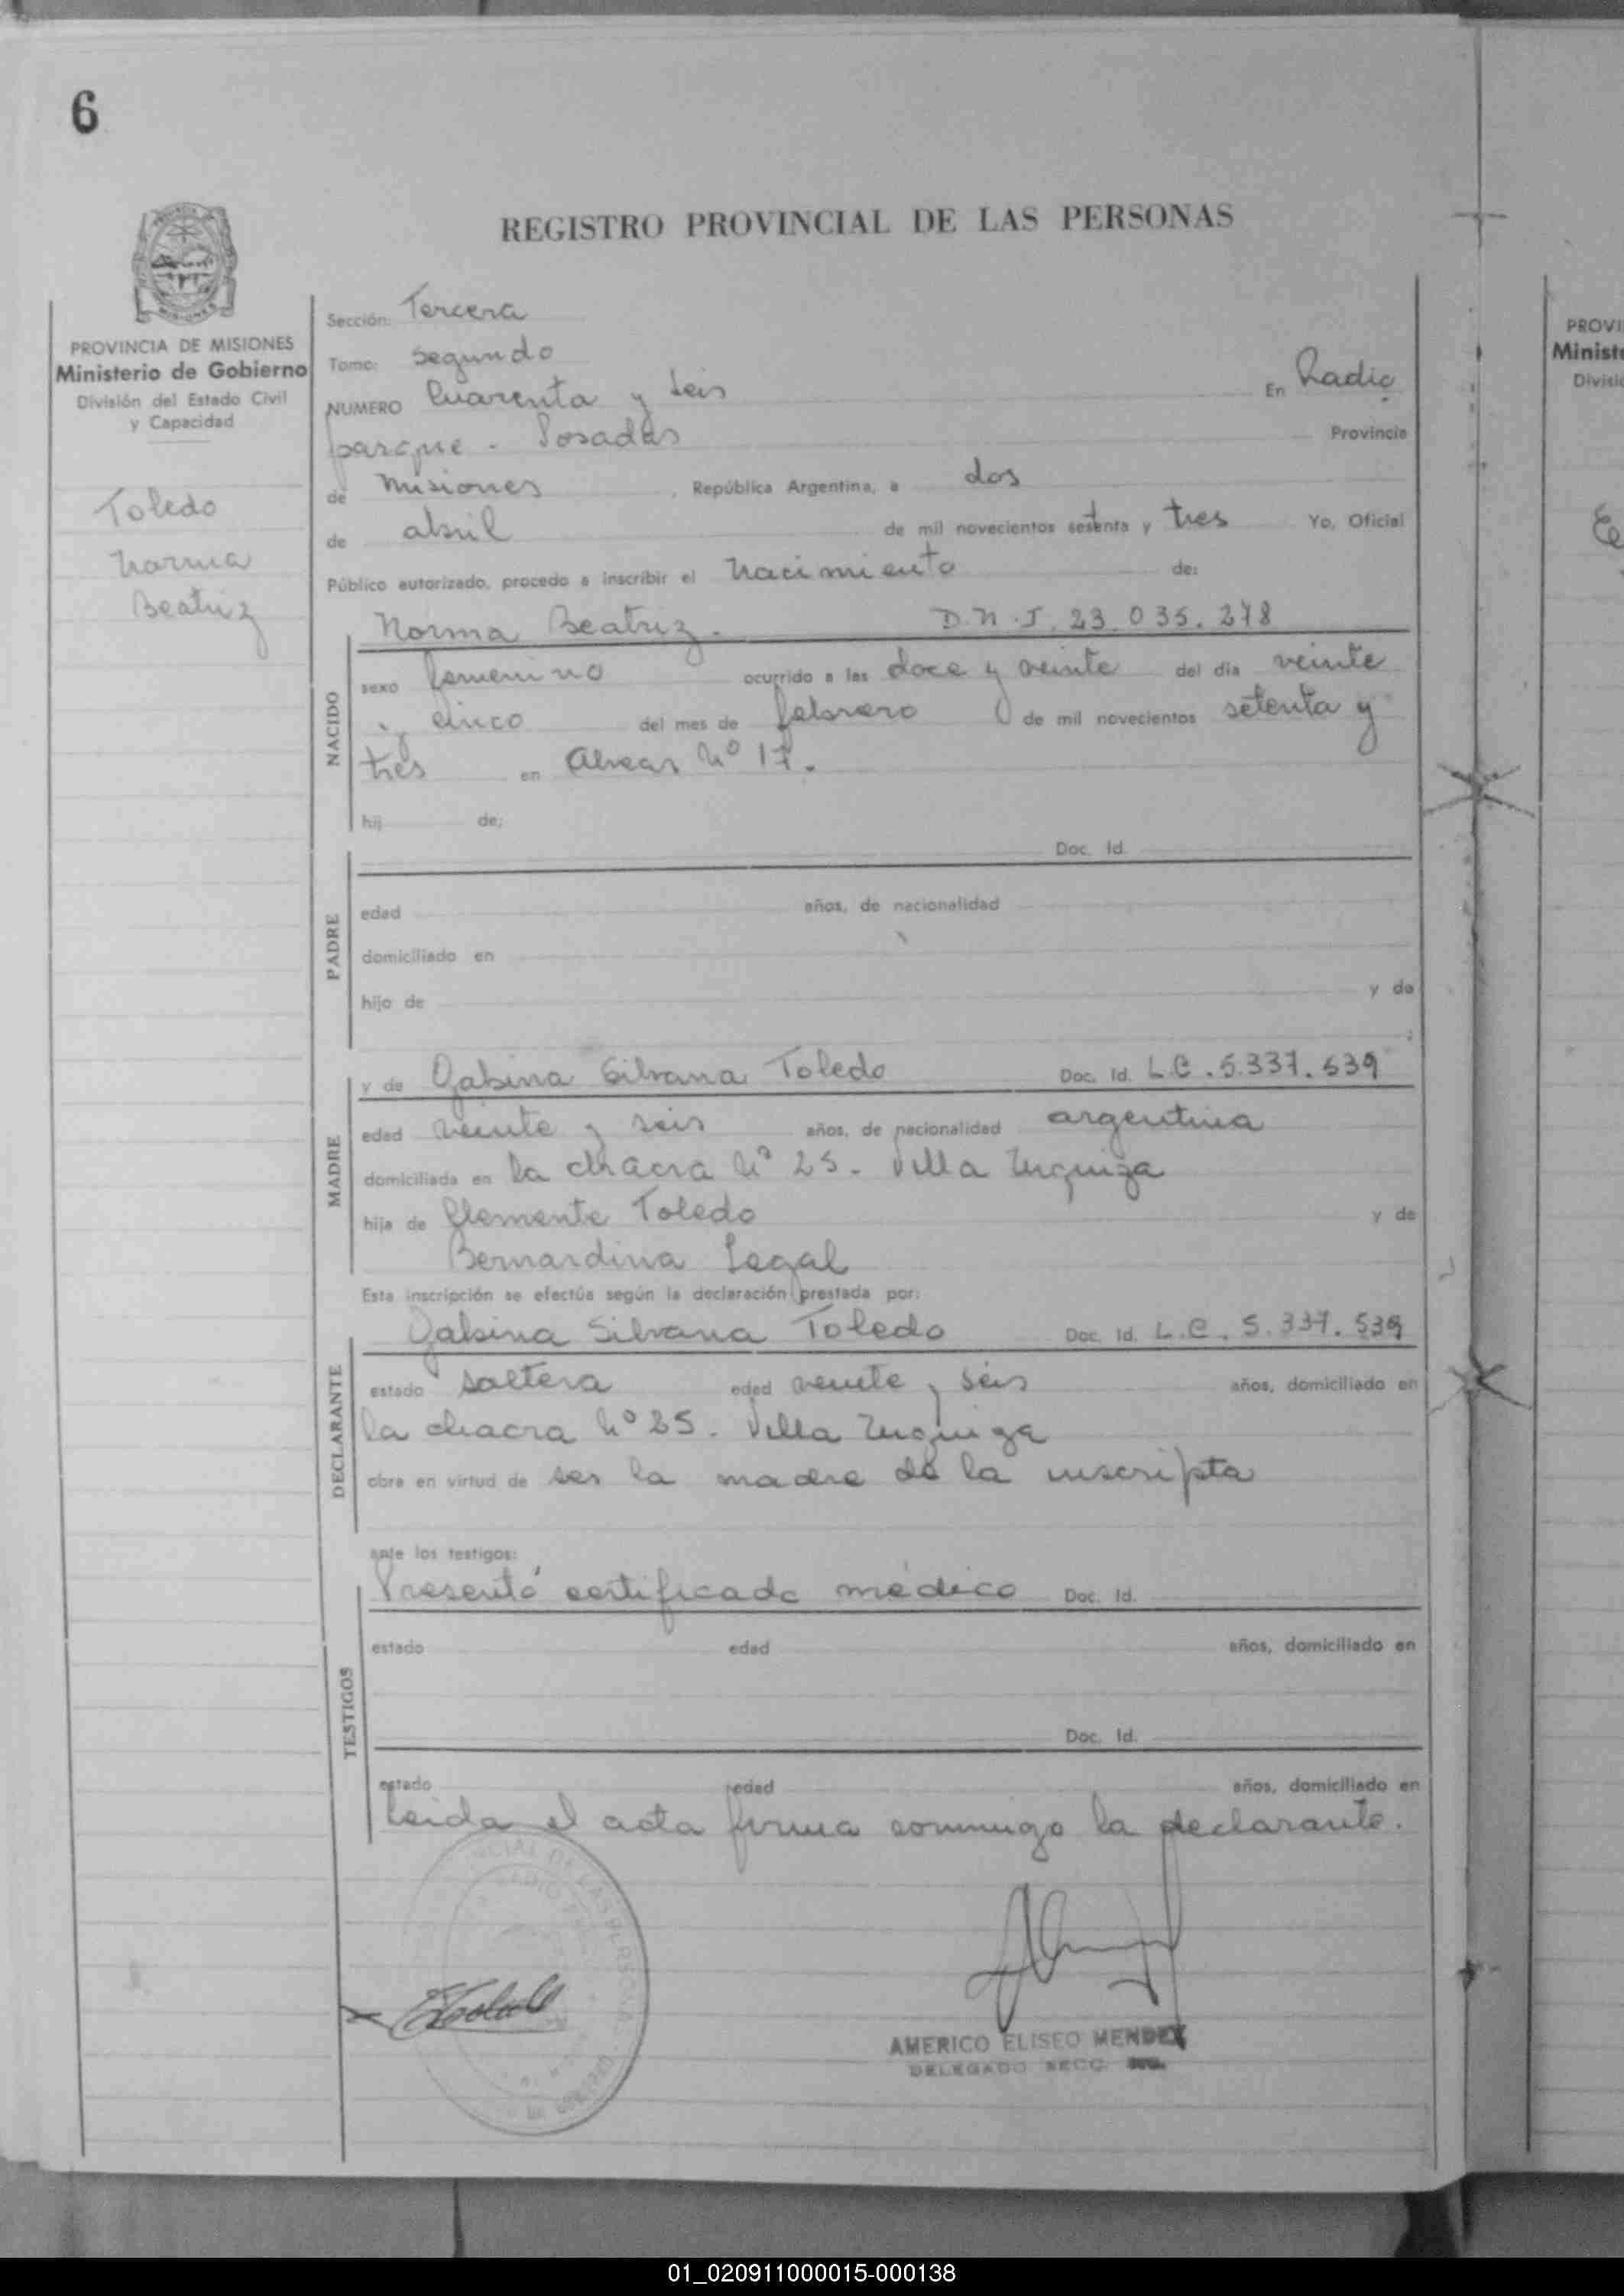 6
REGISTRO PROVINCIAL DE LAS PERSONAS
PROVINCIA DE MISIONES
Ministerio de Gobierno
División del Estado Civil
y Capacidad
Toledo
Norma
Beatriz
Sección: Tercera
Tomo: Segundo
NUMERO Cuarenta y seis En Radio
parque - Posadas Provincia
de Misiones, República Argentina, a dos
de abril de mil novecientos setenta y tres Yo, Oficial
Público autorizado, procedo a inscribir el nacimiento de:
NACIDO
Norma Beatriz. D.N.I. 23.035.278
sexo femenino ocurrido a las doce y veinte del día veinte
y cinco del mes de febrero de mil novecientos setenta y
tres en Alvear Nº 17.
hij de:
PADRE
Doc. Id.
edad años, de nacionalidad
domiciliado en
hijo de y de
;
MADRE
y de Gabina Silvana Toledo Doc. Id. L.C. 5.337.539
edad veinte y seis años, de nacionalidad argentina
domiciliada en la chacra Nº 25. Villa Urquiza
hija de Clemente Toledo y de
Bernardina Legal
Esta inscripción se efectúa según la declaración prestada por:
DECLARANTE
Gabina Silvana Toledo Doc. Id. L.C. 5.337.539
estado soltera edad veinte y seis años, domiciliado en
la chacra Nº 25. Villa Urquiza
obra en virtud de ser la madre de la inscripta
ante los testigos:
TESTIGOS
Presentó certificado médico Doc. Id.
estado edad años, domiciliado en
Doc. Id.
estado edad años, domiciliado en
Leida el acta firma conmigo la declarante.
AMERICO ELISEO MENDEZ
DELEGADO SECC.
PROVI
Ministe
Divisió
01_020911000015-000138